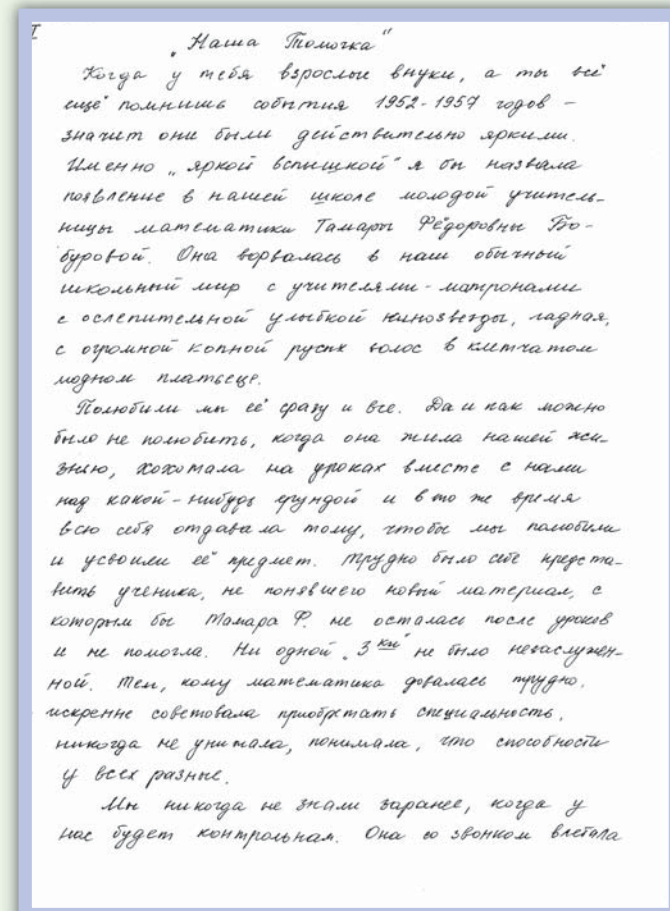 I
„Наша Томочка"
Когда у тебя взрослые внуки, а ты всё
ещё помнишь события 1952-1957 годов –
значит они были действительно яркими.
Именно „яркой вспышкой" я бы назвала
появление в нашей школе молодой учитель-
ницы математики Тамары Фёдоровны Бо-
буровой. Она ворвалась в наш обычный
школьный мир с учителями-матронами
с ослепительной улыбкой кинозвезды, ладная,
с огромной копной русых волос в клетчатом
модном платьеце.
Полюбили мы её сразу и все. Да и как можно
было не полюбить, когда она жила нашей жи-
знью, хохотала на уроках вместе с нами
над какой-нибудь ерундой и в то же время
всю себя отдавала тому, чтобы мы полюбили
и усвоили её предмет. Трудно было себе предста-
вить ученика, не понявшего новый материал, с
которым бы Тамара Ф. не осталась после уроков
и не помогла. Ни одной „3 ки" не было незаслужен-
ной. Тем, кому математика давалась трудно,
искренне советовала приобретать специальность,
никогда не унижала, понимала, что способности
у всех разные.
Мы никогда не знали заранее, когда у
нас будет контрольная. Она со звонком влетала